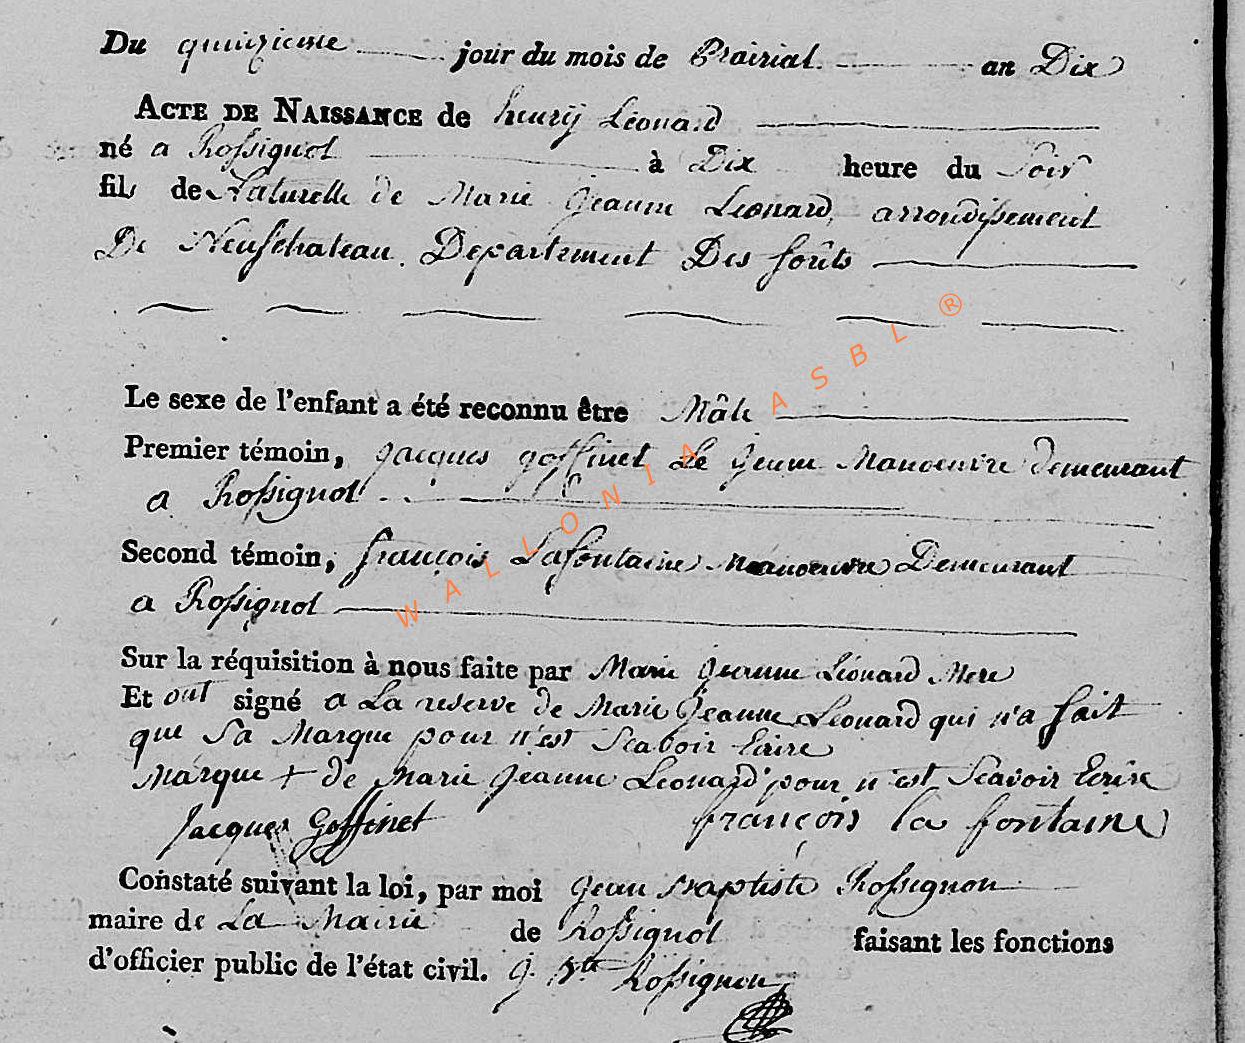 Du quinzieme jour du mois de Prairial an Dix
ACTE DE NAISSANCE de henrÿ Léonard
né a Rossignol à Dix heure du Soir
fils de Naturelle de Marie Jeanne Leonard, arrondissement
De Neufchateau. Departement Des forêts
Le sexe de l'enfant a été reconnu être Mâle
Premier témoin, Jacques goffinet Le Jeune Manoeuvre demeurant
a Rossignol
Second témoin, françois Lafontaine Manoeuvre Demeurant
a Rossignol
Sur la réquisition à nous faite par Marie Jeanne Léonard Mere
Et ont signé a La reserve de Marie Jeanne Leonard qui n'a fait
que Sa Marque pour n'est Scavoir Ecrire
Marque + de Marie Jeanne Leonard pour n'est Scavoir Ecrire
Jacques Goffinet françois la fontaine
Constaté suivant la loi, par moi Jean Baptiste Rossignon
maire de La Mairie de Rossignol faisant les fonctions
d'officier public de l'état civil. J. Bte Rossignon
WALLONIA ASBL ®